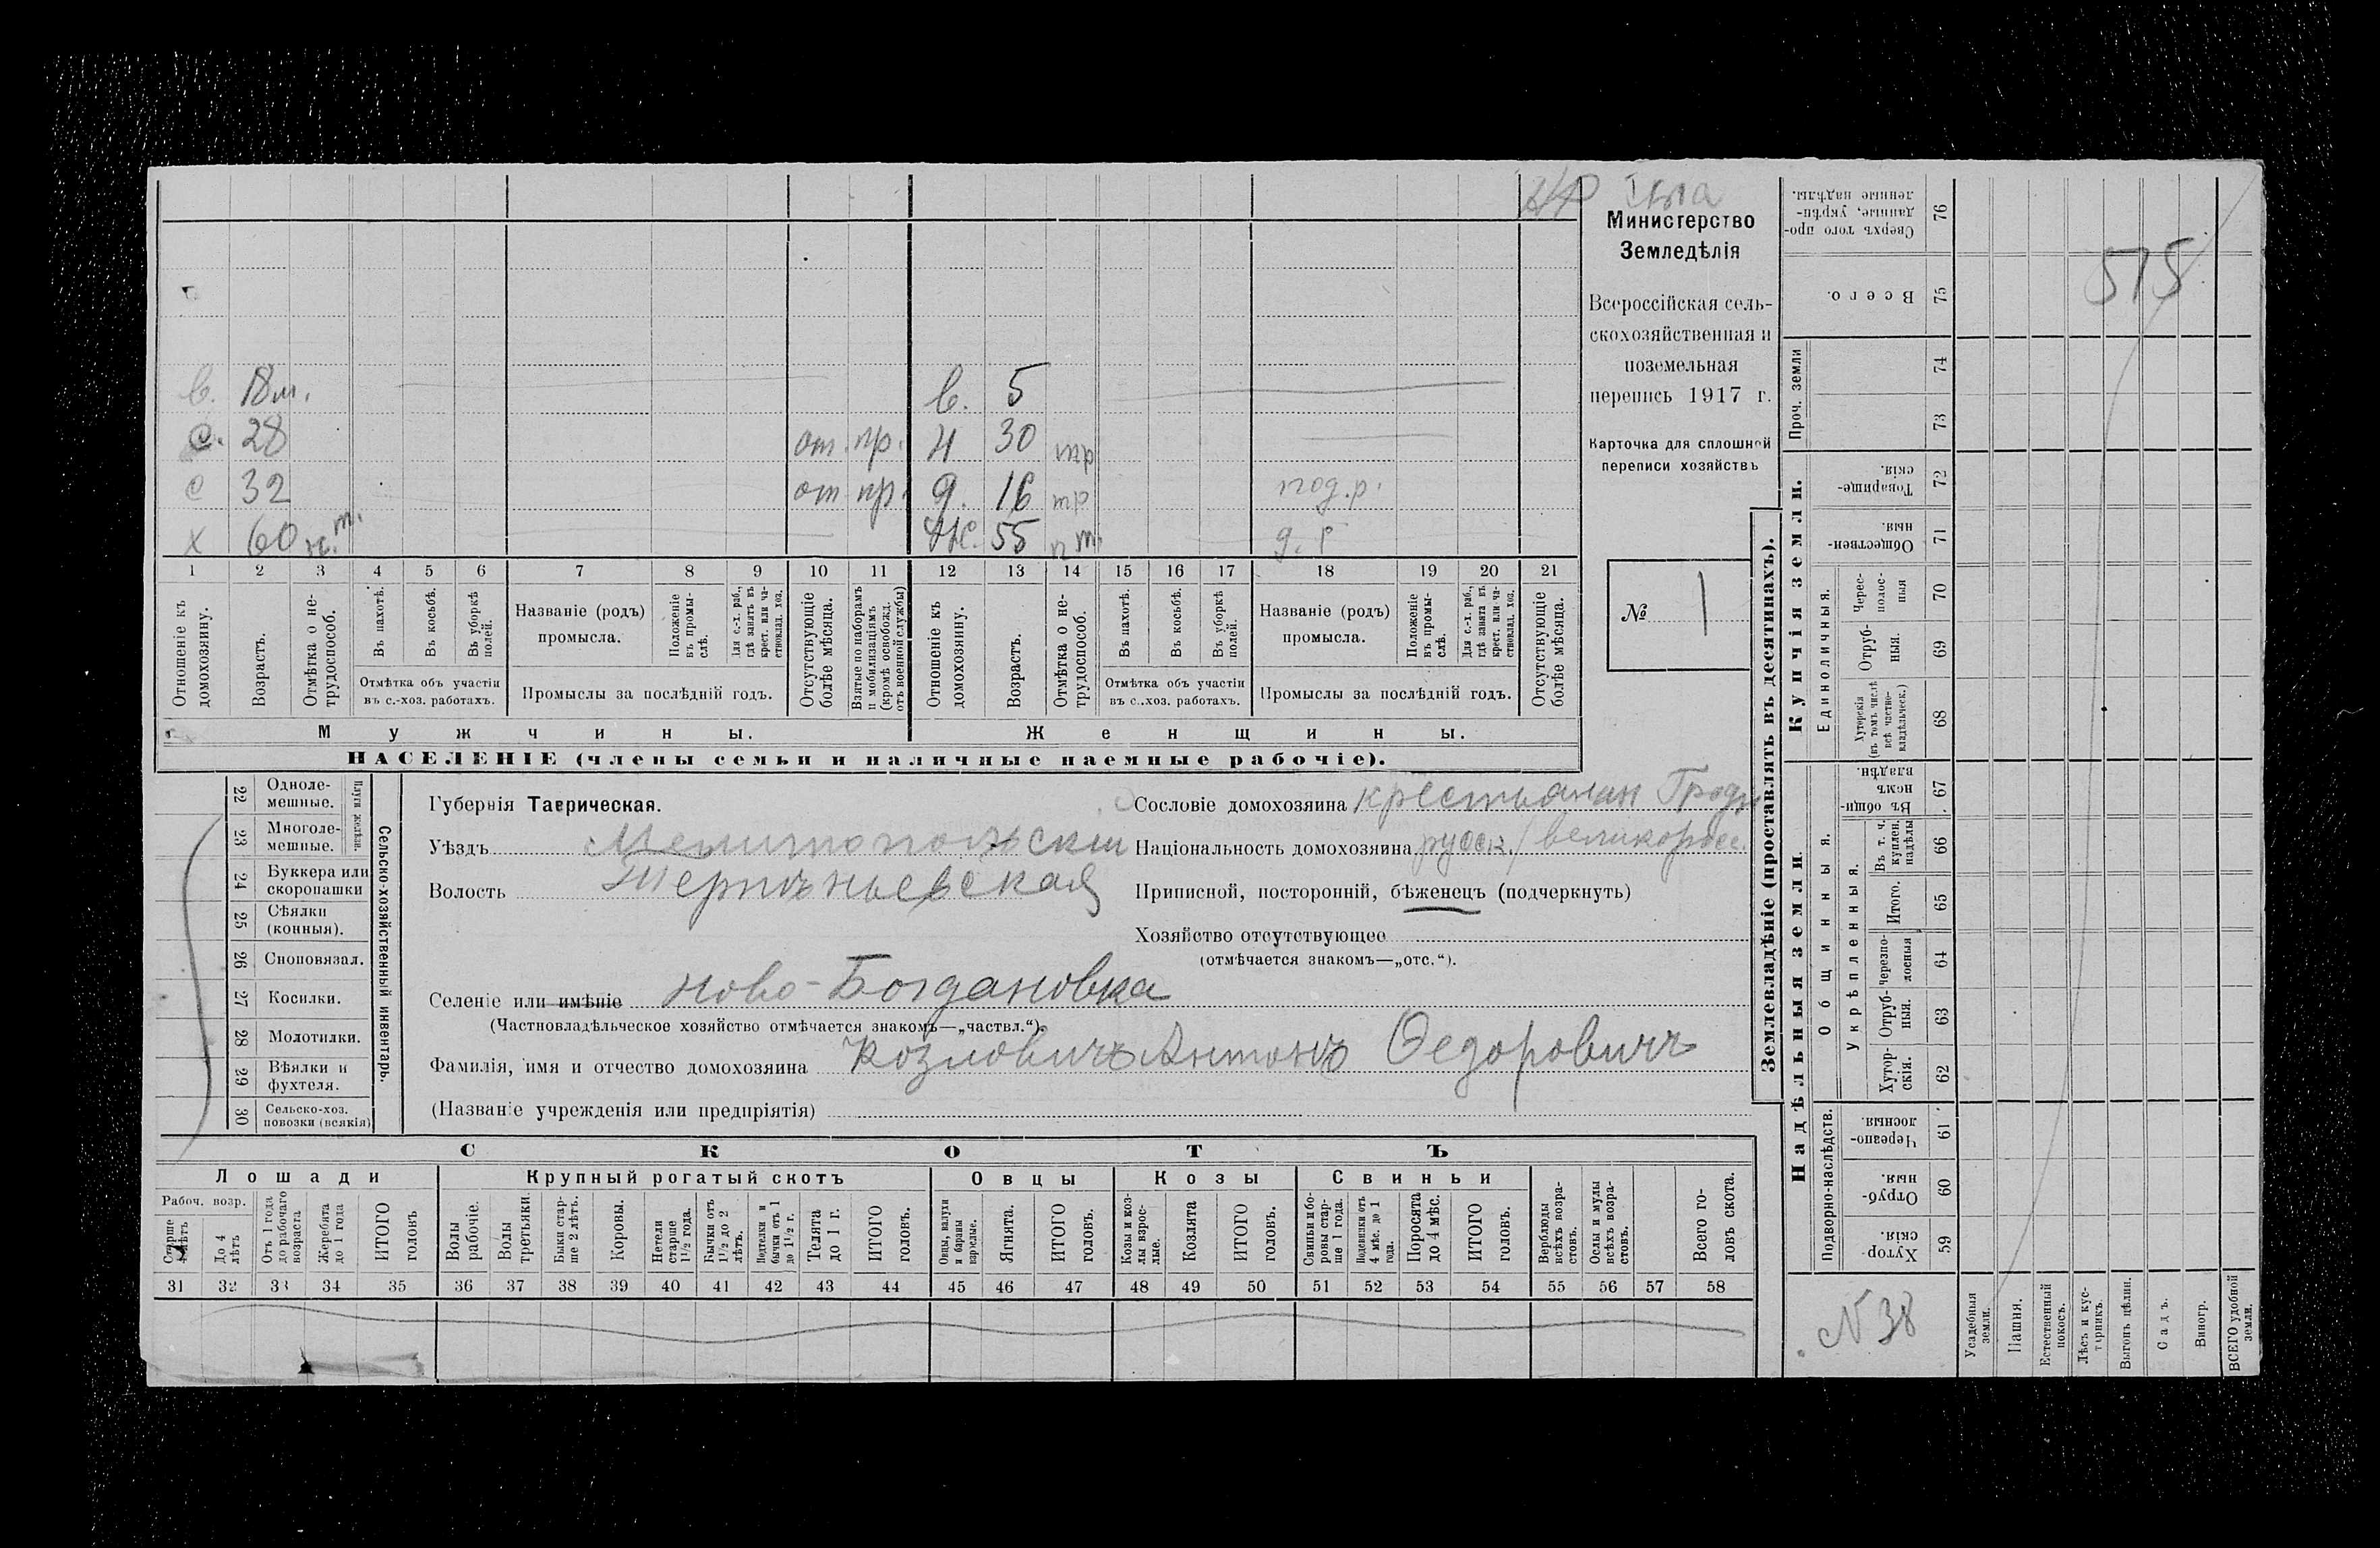 Министерство
Земледѣлія
Всероссійская сель-
скохозяйственная и
поземельная
перепись 1917 г.
Карточка для сплошной
переписи хозяйствъ
№ 1
в. 18 м. в. 5
с. 28 от. пр. н 30 тр
с 32 от пр. д. 16 тр под.р.
х 60 н.т. ж. 55 п т. д. р
1 2 3 4 5 6 7 8 9 10 11 12 13 14 15 16 17 18 19 20 21
Отношеніе къ домохозяину.
Возрастъ.
Отмѣтка о не-трудоспособ.
Въ пахотѣ.
Въ косьбѣ.
Въ уборкѣ полей.
Отмѣтка объ участіи
въ с.-хоз. работахъ.
Названіе (родъ)
промысла.
Положеніе въ промы-слѣ.
Для с.-х. раб., гдѣ занятъ въ крест. или ча-стновлад. хоз.
Промыслы за послѣдній годъ.
Отсутствующіе болѣе мѣсяца.
Взятые по наборамъ и мобилизаціямъ (кромѣ освобожд. отъ военной службы)
Отношеніе къ домохозяину.
Возрастъ.
Отмѣтка о не-трудоспособ.
Въ пахотѣ.
Въ косьбѣ.
Въ уборкѣ полей.
Отмѣтка объ участіи
въ с.-хоз. работахъ.
Названіе (родъ)
промысла.
Положеніе въ промы-слѣ.
Для с.-х. раб., гдѣ занята въ крест. или ча-стновлад. хоз.
Промыслы за послѣдній годъ.
Отсутствующіе болѣе мѣсяца.
Мужчины. Женщины.
НАСЕЛЕНІЕ (члены семьи и наличные наемные рабочіе).
Сельско-хозяйственный инвентарь.
Плуги желѣзн.
22 Одноле-мешные.
23 Многоле-мешные.
24 Буккера или скоропашки
25 Сѣялки (конныя).
26 Сноповязал.
27 Косилки.
28 Молотилки.
29 Вѣялки и фухтеля.
30 Сельско-хоз. повозки (всякія)
Губернія Таврическая.
Уѣздъ Мелитопольскій
Волость Терпѣньевская
Селеніе или имѣніе Ново-Богдановка
(Частновладѣльческое хозяйство отмѣчается знакомъ—„частвл.“).
Фамилія, имя и отчество домохозяина Козловичъ Антонъ Федоровичъ
(Названіе учрежденія или предпріятія)
Сословіе домохозяина крестьянин Гродн
Національность домохозяина русск. / великоросс.
Приписной, посторонній, бѣженецъ (подчеркнуть)
Хозяйство отсутствующее
(отмѣчается знакомъ—„отс.“).
СКОТЪ
Лошади Крупный рогатый скотъ Овцы Козы Свиньи
Рабоч. возр.
Старше лѣтъ
До 4 лѣтъ
Отъ 1 года до рабочаго возраста
Жеребята до 1 года
ИТОГО головъ
Волы рабочіе.
Волы третьяки.
Быки стар-ше 2 лѣтъ.
Коровы.
Нетели старше 1½ года.
Бычки отъ 1½ до 2 лѣтъ.
Подтелки и бычки отъ 1 до 1½ г.
Телята до 1 г.
ИТОГО головъ.
Овцы, валухи и бараны взрослые.
Ягнята.
ИТОГО головъ.
Козы и коз-лы взрос-лые.
Козлята
ИТОГО головъ.
Свиньи и бо-ровы стар-ше 1 года.
Подсвинки отъ 4 мѣс. до 1 года.
Поросята до 4 мѣс.
ИТОГО головъ.
Верблюды всѣхъ возра-стовъ.
Ослы и мулы всѣхъ возра-стовъ.
Всего го-ловъ скота.
31 32 33 34 35 36 37 38 39 40 41 42 43 44 45 46 47 48 49 50 51 52 53 54 55 56 57 58
Землевладѣніе (проставлять въ десятинахъ).
Надѣльныя земли.
Подворно-наслѣдств.
Хутор-скія. 59
Отруб-ныя. 60
Черезпо-лосныя. 61
Общинныя.
Укрѣпленныя.
Хутор-скія. 62
Отруб-ныя. 63
черезпо-лосныя 64
Итого. 65
Въ т. ч. куплен. надѣлы 66
Въ общин-номъ владѣн. 67
Купчія земли.
Единоличныя.
Хуторскія (въ томъ числѣ всѣ частно-владѣльческ.) 68
Отруб-ныя. 69
Черес-полос-ныя 70
Обществен-ныя. 71
Товарище-скія. 72
Проч. земли
73
74
Всего. 75
Сверхъ того про-данные, укрѣп-ленные надѣлы. 76
515
N 38
Усадебныя земли.
Пашня.
Естественный покосъ.
Лѣсъ и кус-тарникъ.
Выгонъ цѣлин.
Садъ.
Виногр.
ВСЕГО удобной земли.